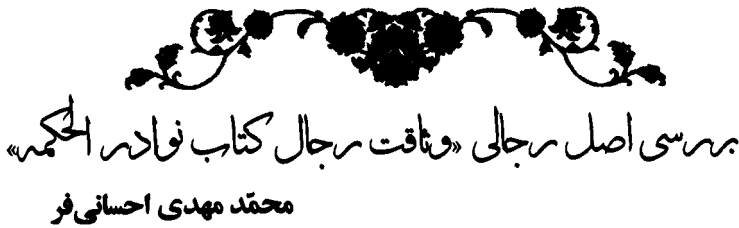 بررسی اصل رجالی «وثاقت رجال کتاب نوادر الحکمه»
محمّد مهدی احسانی‌فر